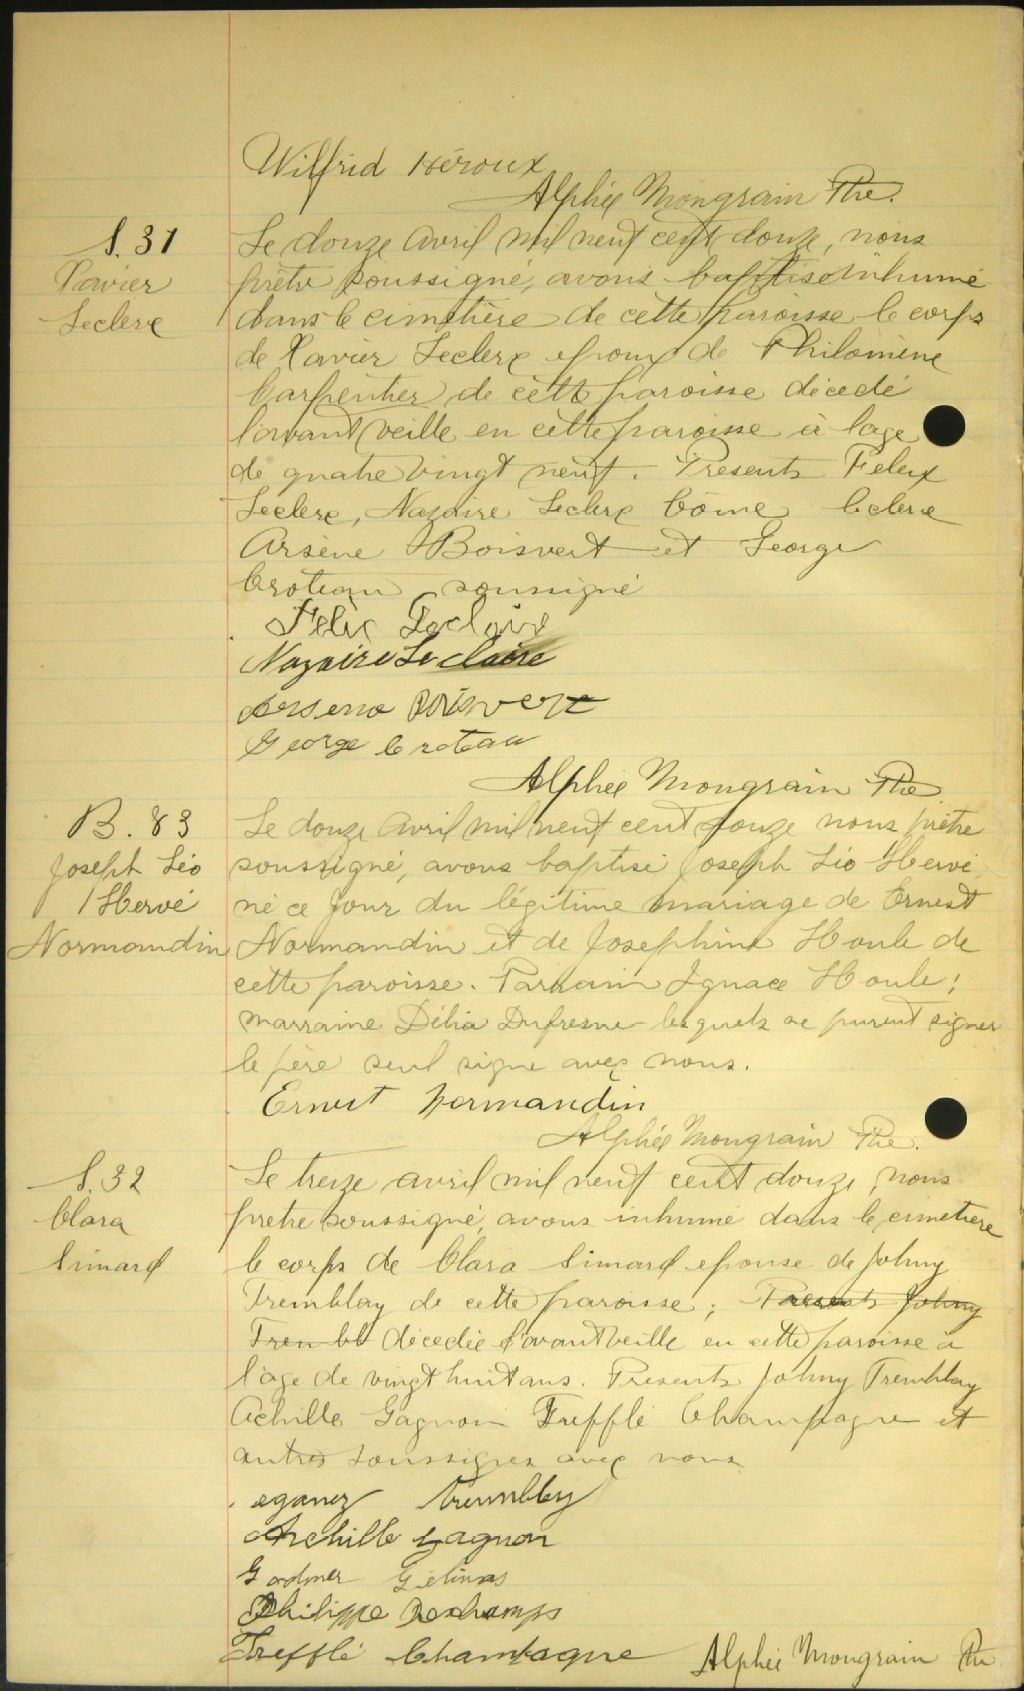 Wilfrid Héroux
Alphée Mongrain Ptre.
S. 31
Xavier
Leclerc
Le douze avril mil neuf cent douze, nous
prêtre soussigné, avons baptisé inhumé
dans le cimetière de cette paroisse le corps
de Xavier Leclerc epoux de Philomène
Carpentier de cette paroisse décedé
l'avant veille en cette paroisse à l'age
de quatre vingt neuf. Presents Felix
Leclerc, Nazaire Leclerc Côme leclerc
Arsène Boisvert et George
Croteau soussigné
Felix Leclaire
Nazaire Leclaire
Arsene Boisvert
George Croteau
Alphée Mongrain Ptre
B. 83
Joseph Léo
Hervé
Normandin
Le douze avril mil neuf cent douze nous prêtre
soussigné, avons baptisé Joseph Léo Hervé,
né ce jour du légitime mariage de Ernest
Normandin et de Josephine Houle de
cette paroisse. Parrain Ignace Houle;
marraine Délia Dufresne lesquels ne purent signer
le père seul signe avec nous.
Ernest Normandin
Alphée Mongrain Ptre.
S. 32
Clara
Simard
Le treize avril mil neuf cent douze, nous
pretre soussigné, avons inhumé dans le cimetiere
le corps de Clara Simard epouse de Johny
Tremblay de cette paroisse; Presents Johny
Trembl décedée l'avant veille en cette paroisse a
l'age de vingt huit ans. Presents Johny Tremblay
Achille Gagnon Treffle Champagne et
autres soussignes avec nous
Tremblay
Archille gagnon
Gelinas
Philippe Deschamps
Trefflé Champagne
Alphée Mongrain Ptre